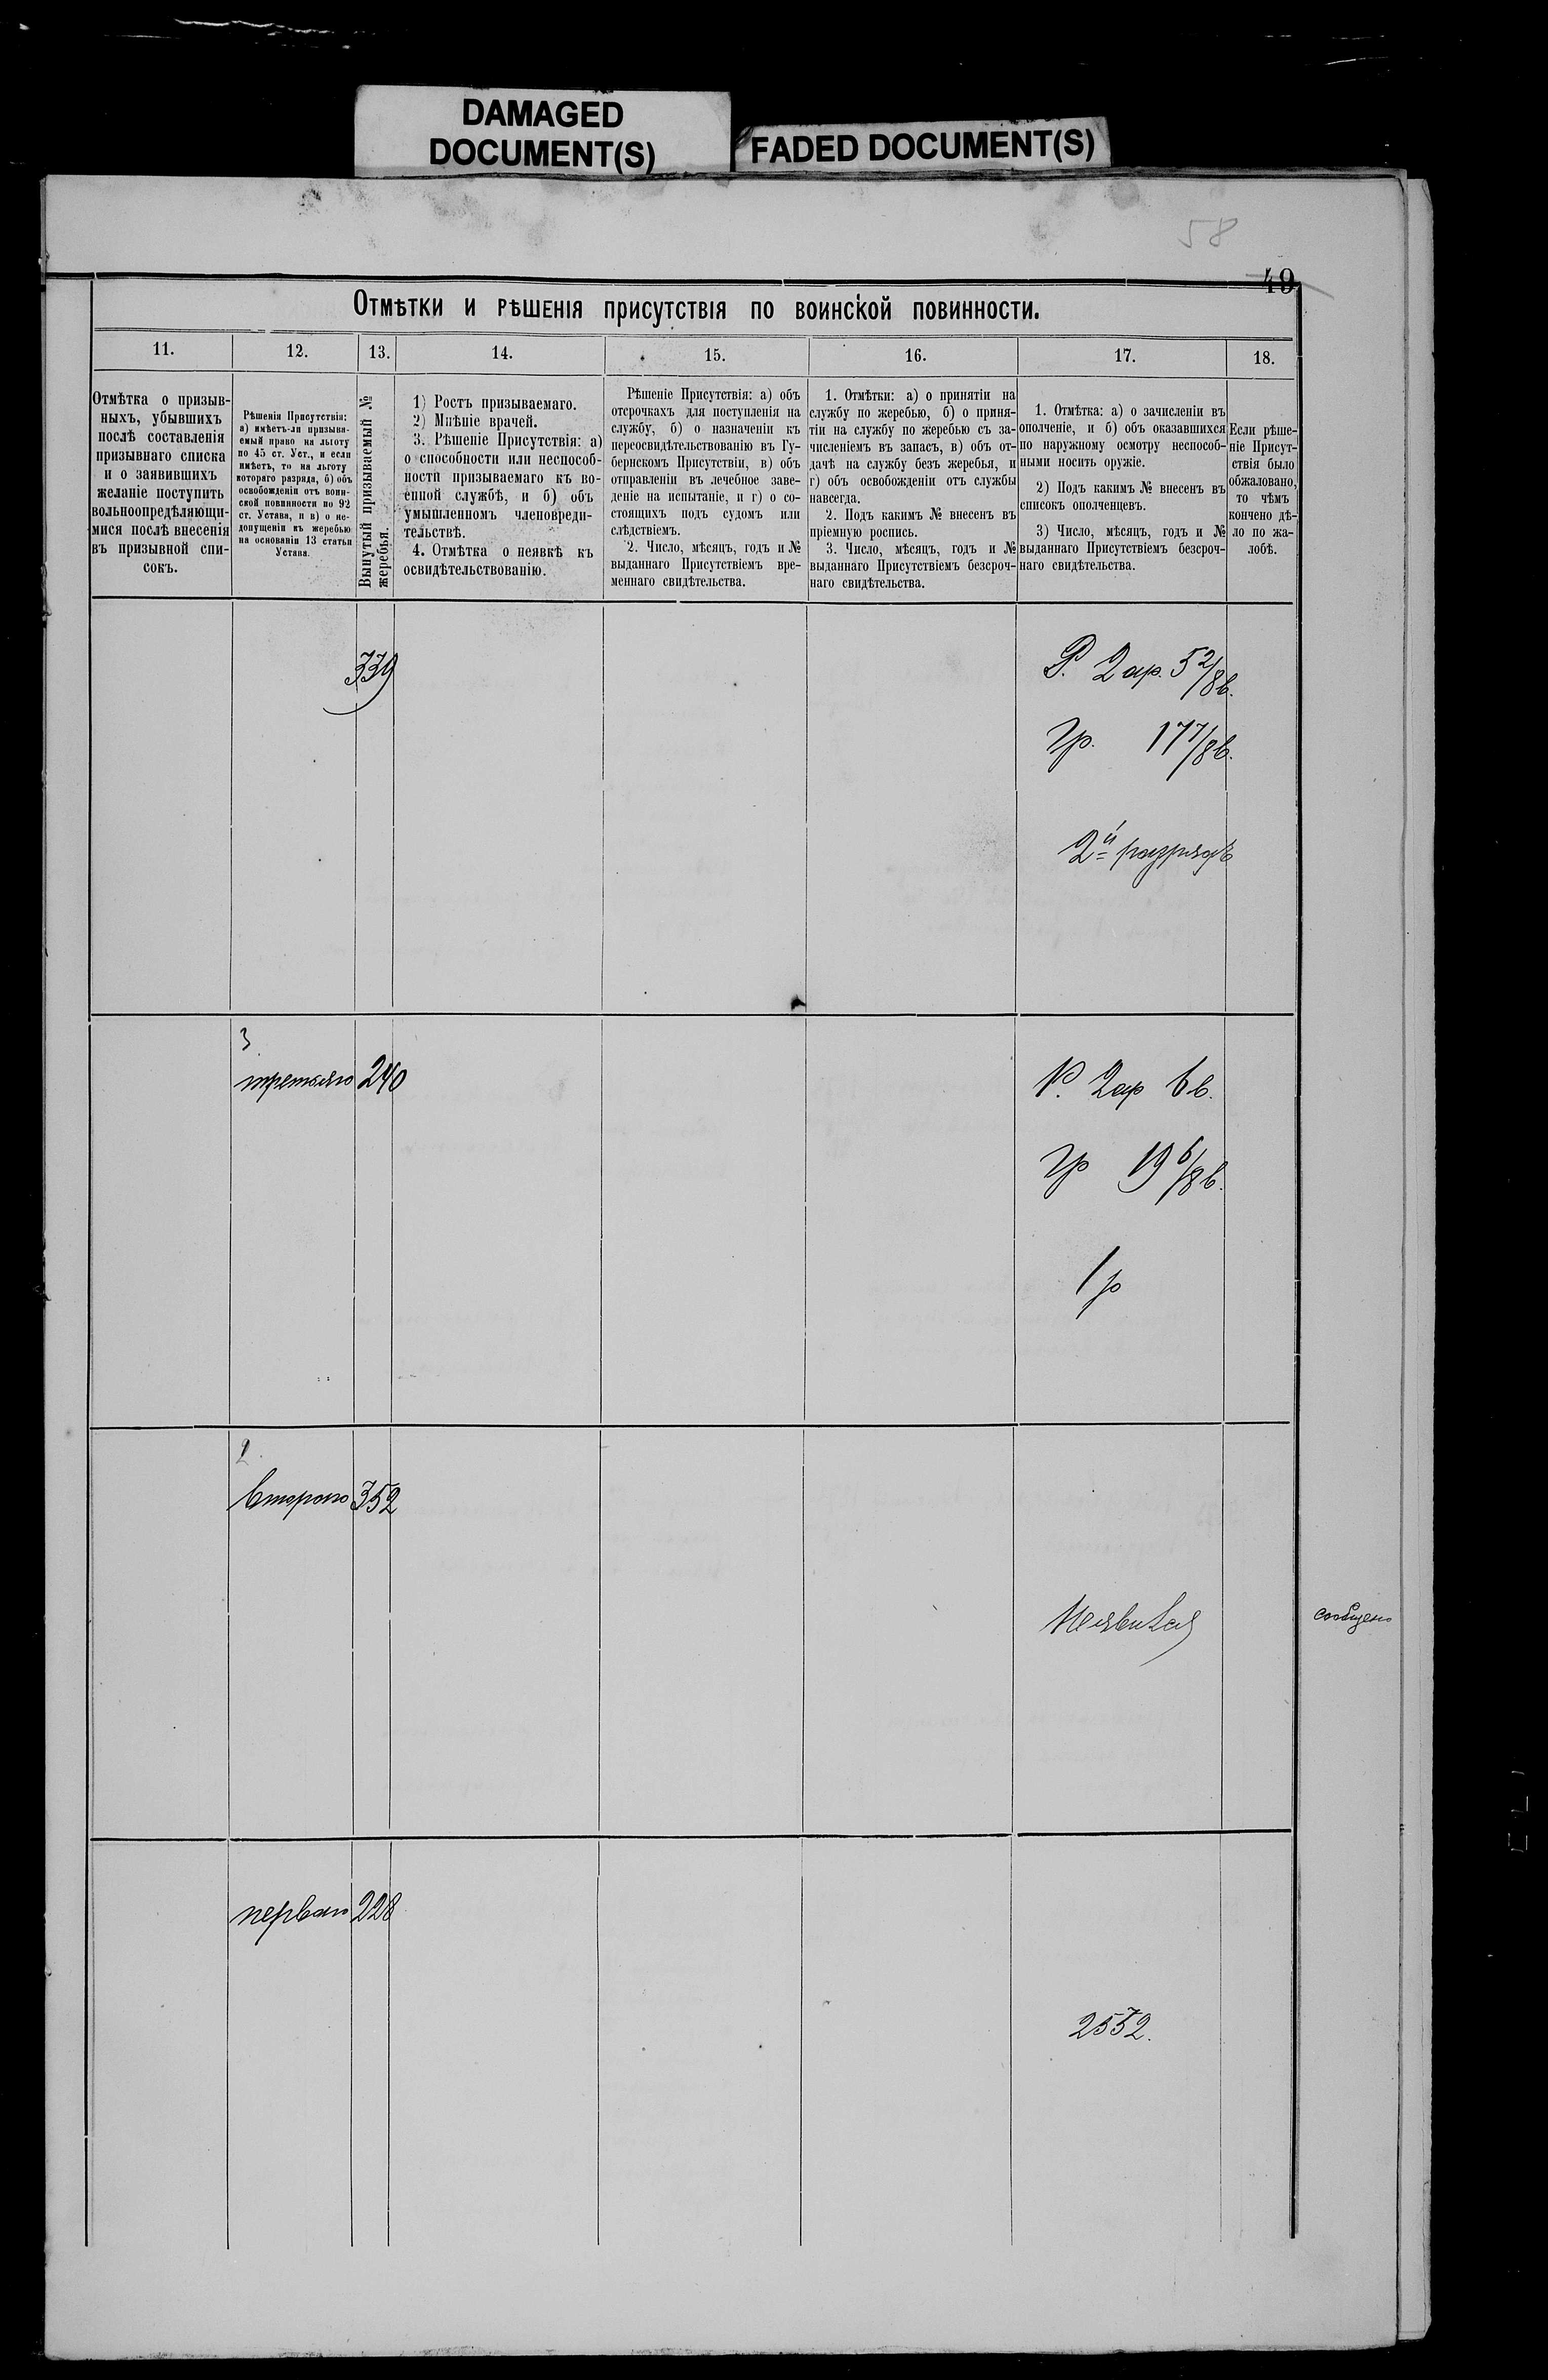 DAMAGED
DOCUMENT(S)
FADED DOCUMENT(S)
58
49
Отмѣтки и рѣшенія присутствія по воинской повинности.
11.
12.
13.
14.
15.
16.
17.
18.
Отмѣтка о призыв-
ныхъ, убывшихъ
послѣ составленія
призывнаго списка
и о заявившихъ
желаніе поступить
вольноопредѣляющи-
мися послѣ внесенія
въ призывной спи-
сокъ.
Рѣшенія Присутствія:
а) имѣетъ-ли призыва-
емый право на льготу
по 45 ст. Уст., и если
имѣетъ, то на льготу
котораго разряда, б) объ
освобожденіи отъ воин-
ской повинности по 92
ст. Устава, и в) о не-
допущеніи къ жеребью
на основаніи 13 статьи
Устава.
Вынутый призываемый №
жеребья.
1) Ростъ призываемаго.
2) Мнѣніе врачей.
3. Рѣшеніе Присутствія: а)
о способности или неспособ-
ности призываемаго къ во-
енной службѣ, и б) объ
умышленномъ членовреди-
тельствѣ.
4. Отмѣтка о неявкѣ къ
освидѣтельствованію.
Рѣшеніе Присутствія: а) объ
отсрочкахъ для поступленія на
службу, б) о назначеніи къ
переосвидѣтельствованію въ Гу-
бернскомъ Присутствіи, в) объ
отправленіи въ лечебное заве-
деніе на испытаніе, и г) о со-
стоящихъ подъ судомъ или
слѣдствіемъ.
2. Число, мѣсяцъ, годъ и №
выданнаго Присутствіемъ вре-
меннаго свидѣтельства.
1. Отмѣтки: а) о принятіи на
службу по жеребью, б) о приня-
тіи на службу по жеребью съ за-
численіемъ въ запасъ, в) объ от-
дачѣ на службу безъ жеребья, и
г) объ освобожденіи отъ службы
навсегда.
2. Подъ какимъ № внесенъ въ
пріемную роспись.
3. Число, мѣсяцъ, годъ и №
выданнаго Присутствіемъ безсроч-
наго свидѣтельства.
1. Отмѣтка: а) о зачисленіи въ
ополченіе, и б) объ оказавшихся
по наружному осмотру неспособ-
ными носить оружіе.
2) Подъ какимъ № внесенъ въ
списокъ ополченцевъ.
3) Число, мѣсяцъ, годъ и №
выданнаго Присутствіемъ безсроч-
наго свидѣтельства.
Если рѣше-
ніе Присут-
ствія было
обжаловано,
то чѣмъ
кончено дѣ-
ло по жа-
лобѣ.
339
Р. 2 ар. 5 2/8 в.
гр. 17 7/8 в.
2й разрядъ
3
третьяго 240
Р. 2 ар 6 в.
гр 19 6/8 в.
1 р
2.
Второго 352
Неявился
сообщено
перваго 228
2552.